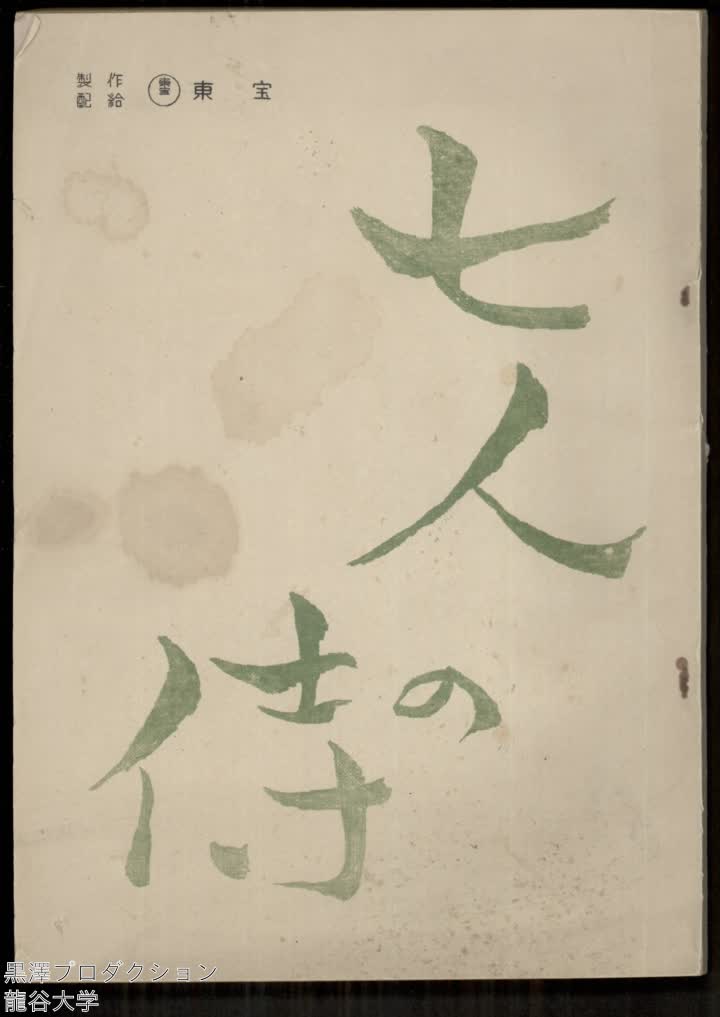 製作
配給
東宝
東宝
七人の侍
黒澤プロダクション
龍谷大学